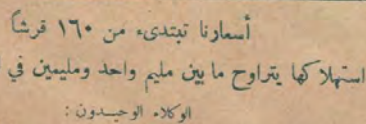 أسعارنا تبتدىء من ١٦٠ قرشاً
استهلاكها يتراوح ما بين مليم واحد ومليمين في
الوكلاء الوحيدون :